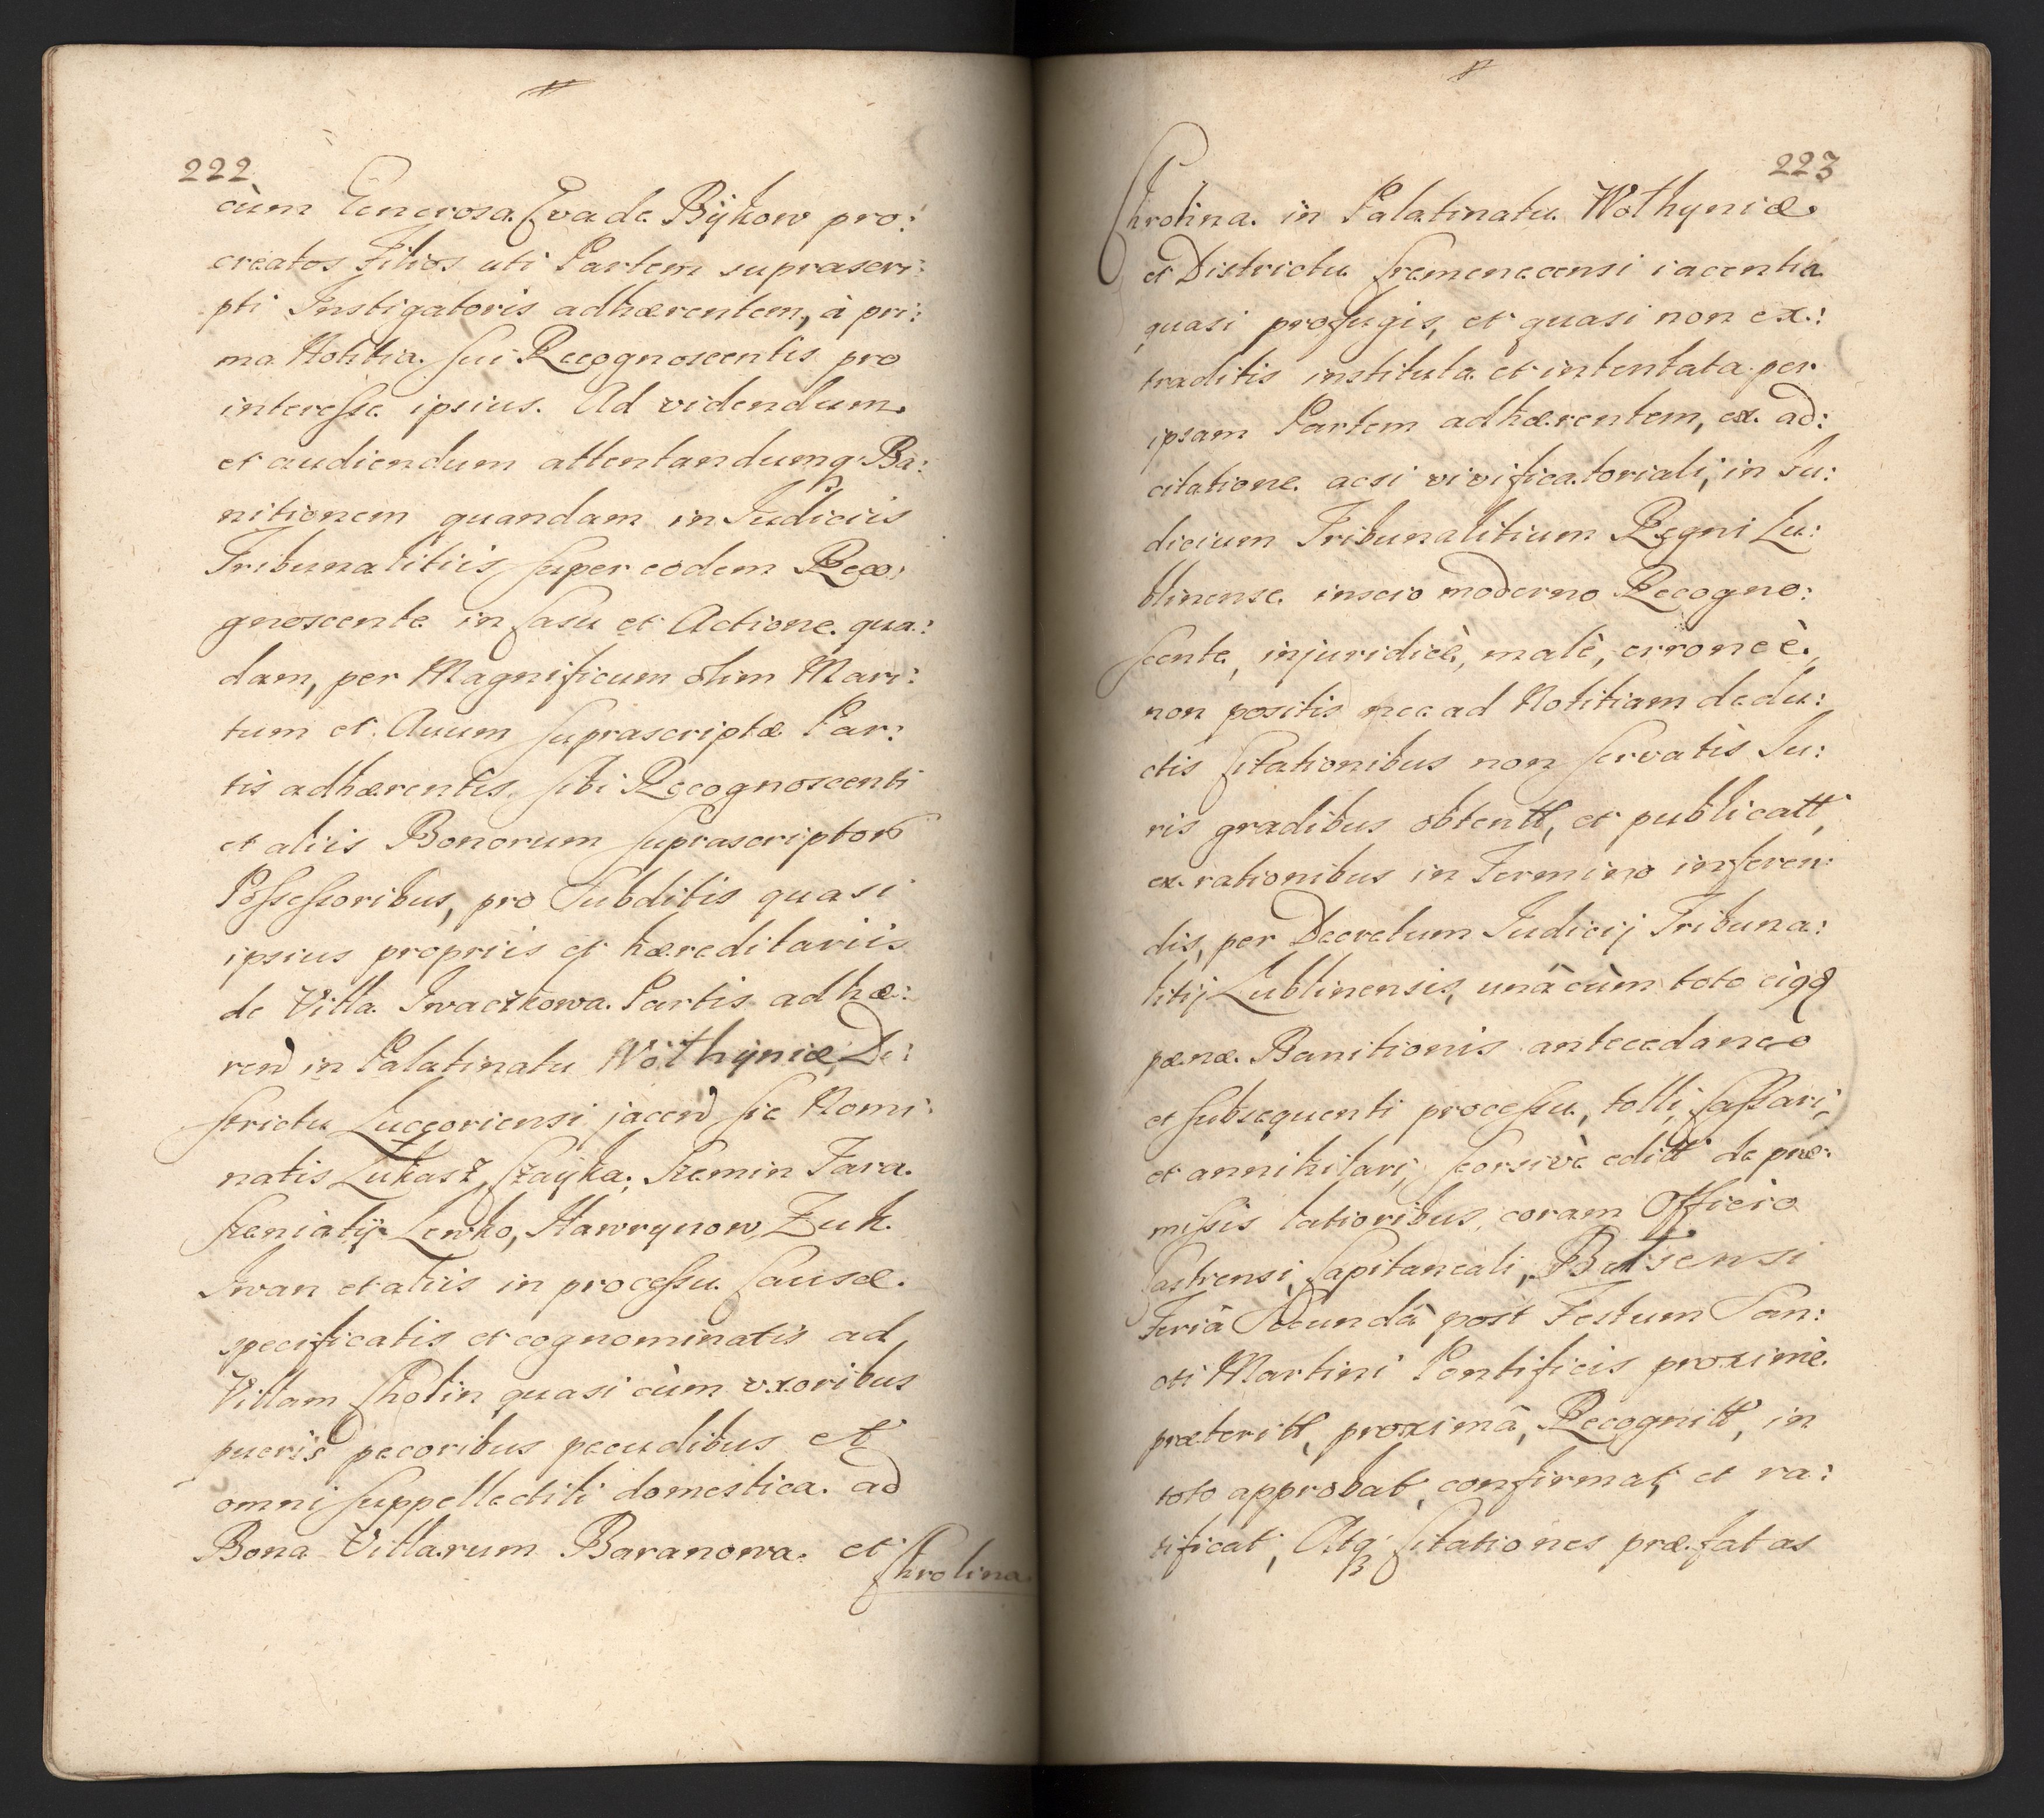 222
cùm Generosa Eva de Bÿkow pro:
creatos Filios uti Partem suprascri:
pti Instigatoris adhærentem, à pri:
ma Notitia sui Recognoscentis pro
interesse ipsius. Ad videndum
et audiendum attentandumq Ba:
nitionem quandam in Judiciis
Tribunalitiis super eodem Reco:
gnoscente in Casu et Actione qua:
dam, per Magnificum olim Mari:
tum et Auum suprascriptæ Par:
tis adhærentis, sibi Recognoscenti
et aliis Bonorum suprascriptor
Possessoribus, pro Subditis quasi
ipsius propriis et hæreditariis
de Villa Iwaczkowa Partis adhæ:
ren in Palatinatu Wołhÿniæ, Di:
strictu Luceoriensi jacen sic Nomi:
natis Łukasz, Czayka, Semin Tara.
Lewko, Hawrynow, Zuk
Iwan et aliis in processu Causæ
specificatis et cognominatis ad
Villam Cholin quasi cùm uxoribus
pueris pecoribus pecudibus et
omni suppellectili domestica ad
Bona Villarum Baranowa et
Chrolina
223
Chrolina in Palatinatu Wołhyniæ
et Districtu Cremenecensi iacentia
quasi profugis, et quasi non ex:
traditis instituta et intentata per
ipsam Partem adhærentem, ex ad:
citatione acsi vivificatoriali, in Ju:
dicium Tribunalitium Regni Lu:
blinense inscio moderno Recogno:
scente, injuridicè, malè, erroneè,
non positis nec ad Notitiam dedu:
ctis Citationibus non servatis Ju:
ris gradibus obtentt, et publicatt,
ex rationibus in Termino inferen:
dis, per Decretum Judicij Tribuna:
litij Lublinensis, unâ cùm toto eiqq
pænæ Banitionis antecedaneo
et subsequenti processu, tolli, cassari,
et annihilari, seorsivè editt de præ:
missis latioribus, coram Officio
Castrensi, Capitaneali, Busensi
Feriâ Secundâ post Festum San:
cti Martini Pontificis proximè
præteritt, proximâ, Recognitt, in
toto approbat, confirmat, et ra:
tificat, Atq Citationes præfatas